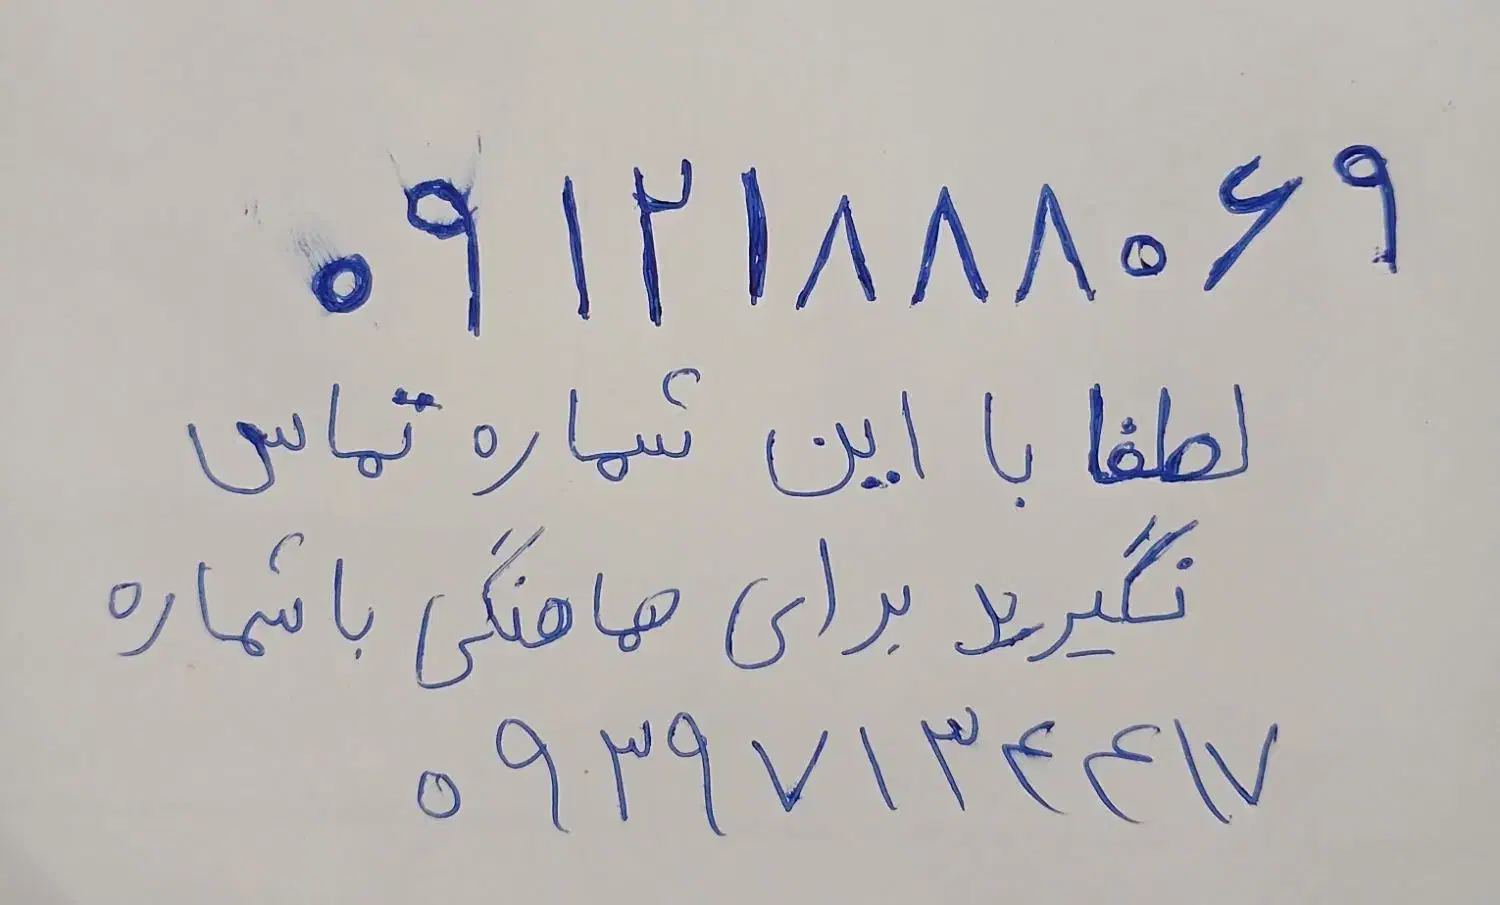 ۰۹۱۲۱۸۸۸۰۶۹
لطفا با این شماره تماس
نگیرید برای هماهنگی با شماره
۰۹۳۹۷۱۳۴۴۱۷